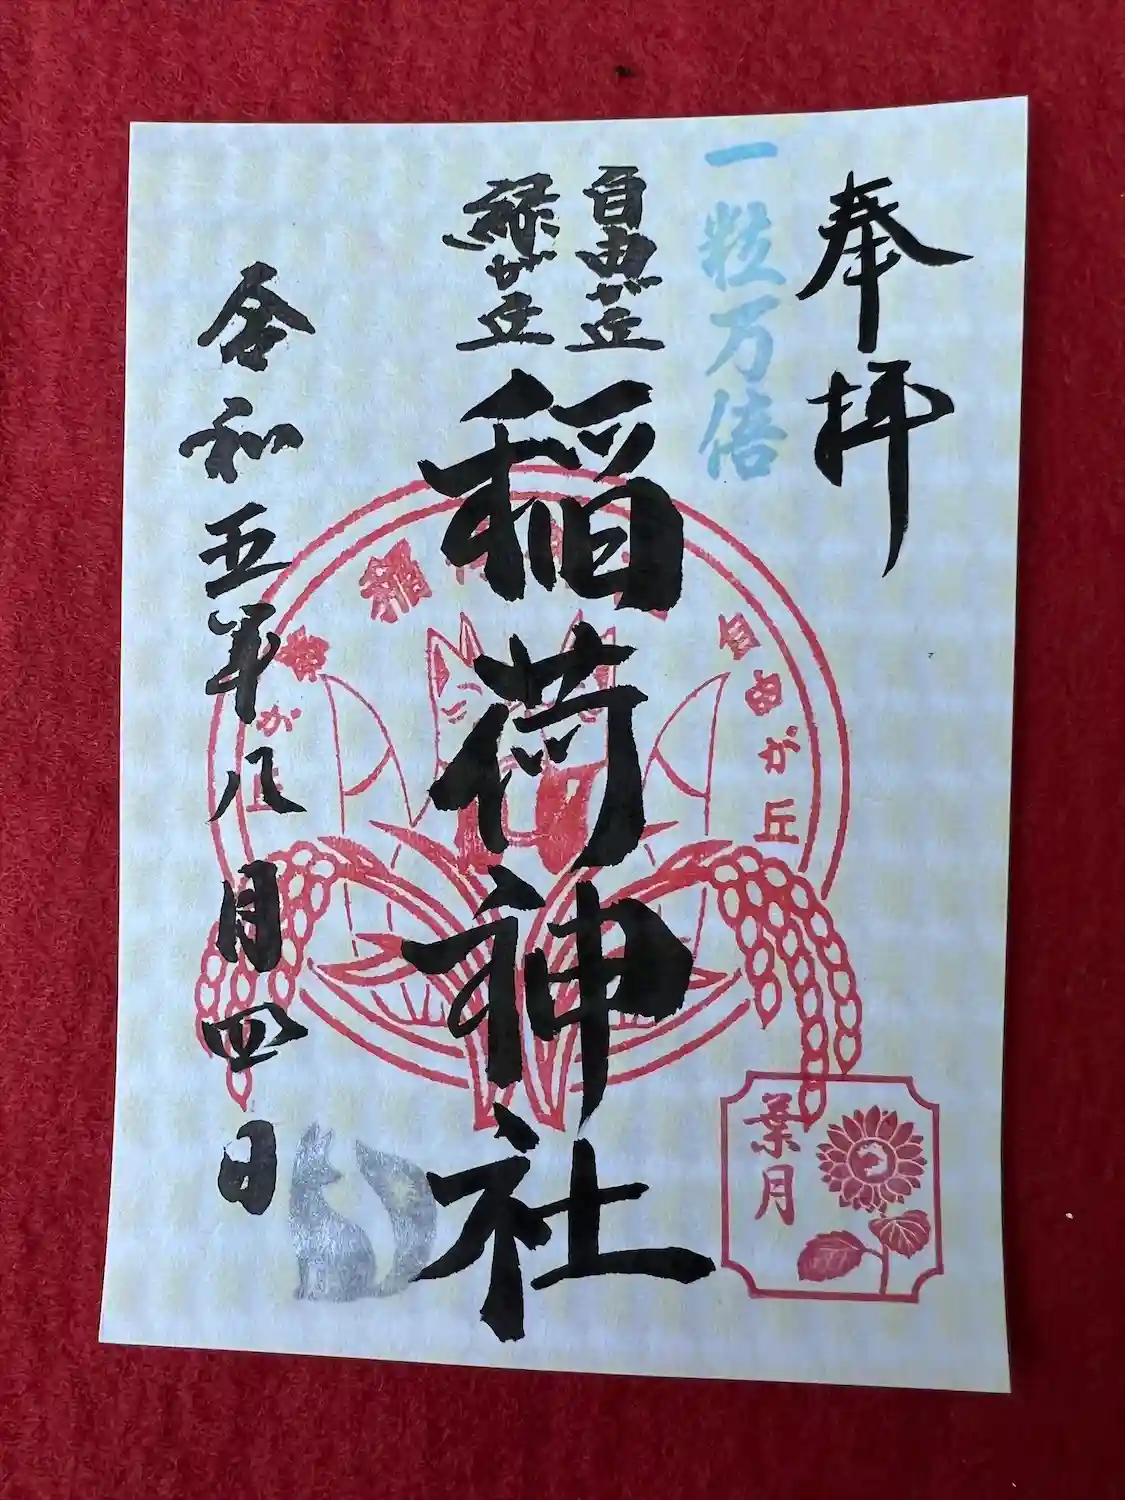 奉拝
一粒万倍
自由が丘
緑が丘
稲荷神社
令和五年八月四日
自由が丘
稲
が丘
葉月